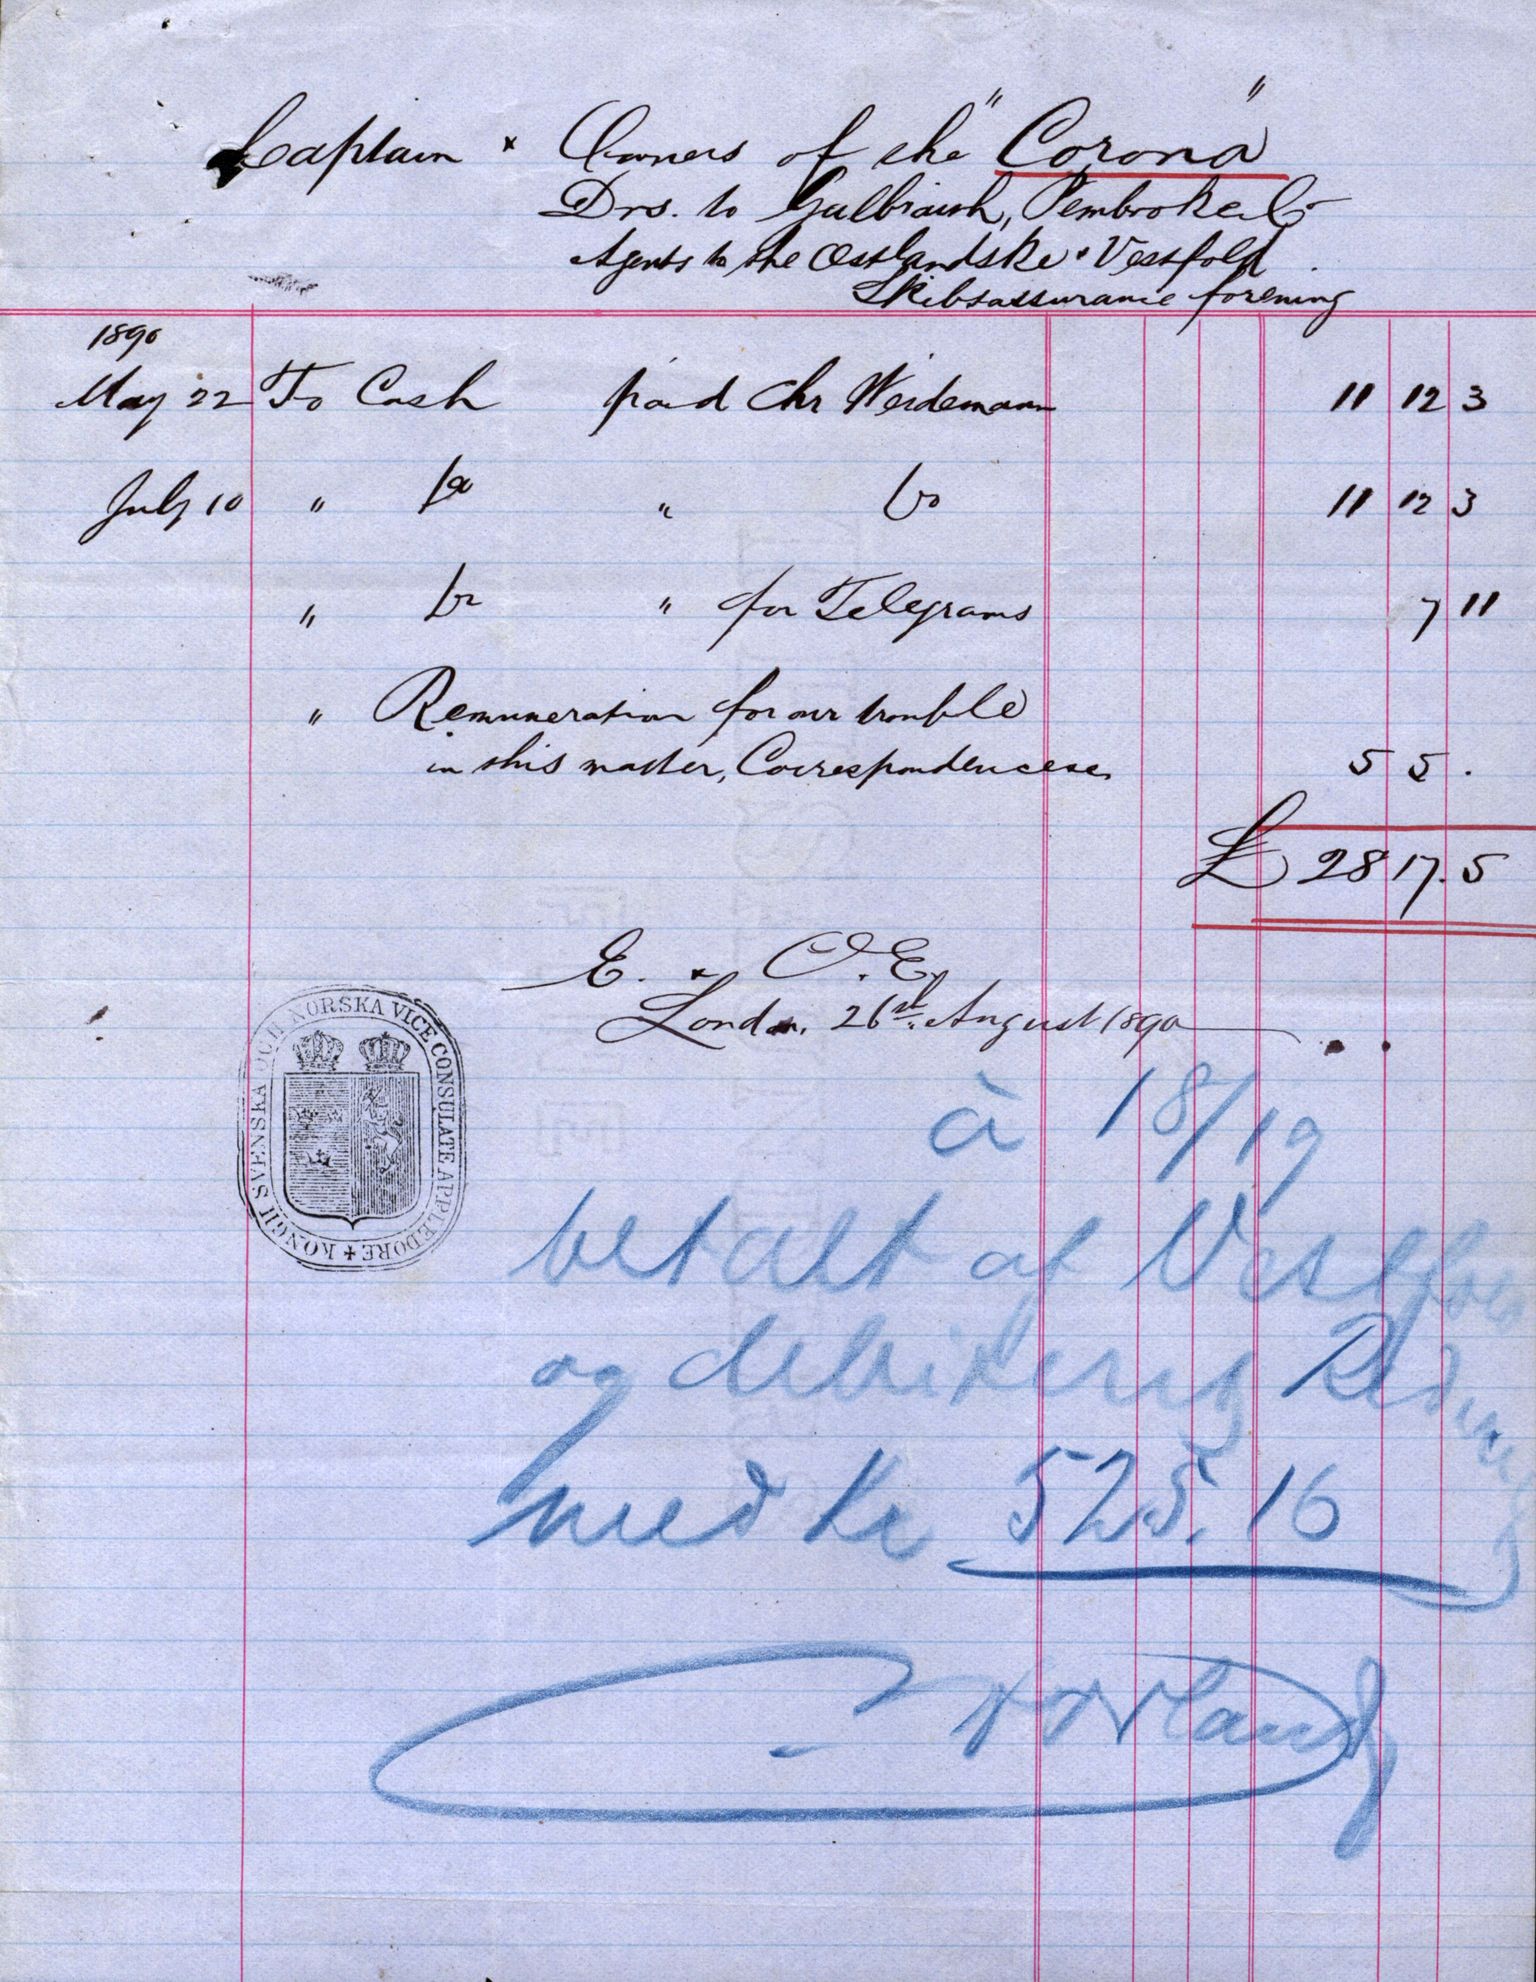 Captain & Owners of the "Corona"
Drs. to Galbraith, Pembroke & Co
Agents to the Ostlandske & Vestfold
Skibsassurance forening
1890
May 22 To Cash paid Chr Weidemann 11 12 3
July 10 " Do " Do 11 12 3
" Do " for Telegrams 7 11
" Remuneration for our trouble
in this matter, Correspondence &c. 5 5 .
£ 28 17. 5
E. & O. E.
London, 26th August 1890
KONGL SVENSKA OCH NORSKA VICE CONSULATE APPLEDORE
à 18/19
betalt af Vestfold
og debiteres Rederiet
med Kr 525.16